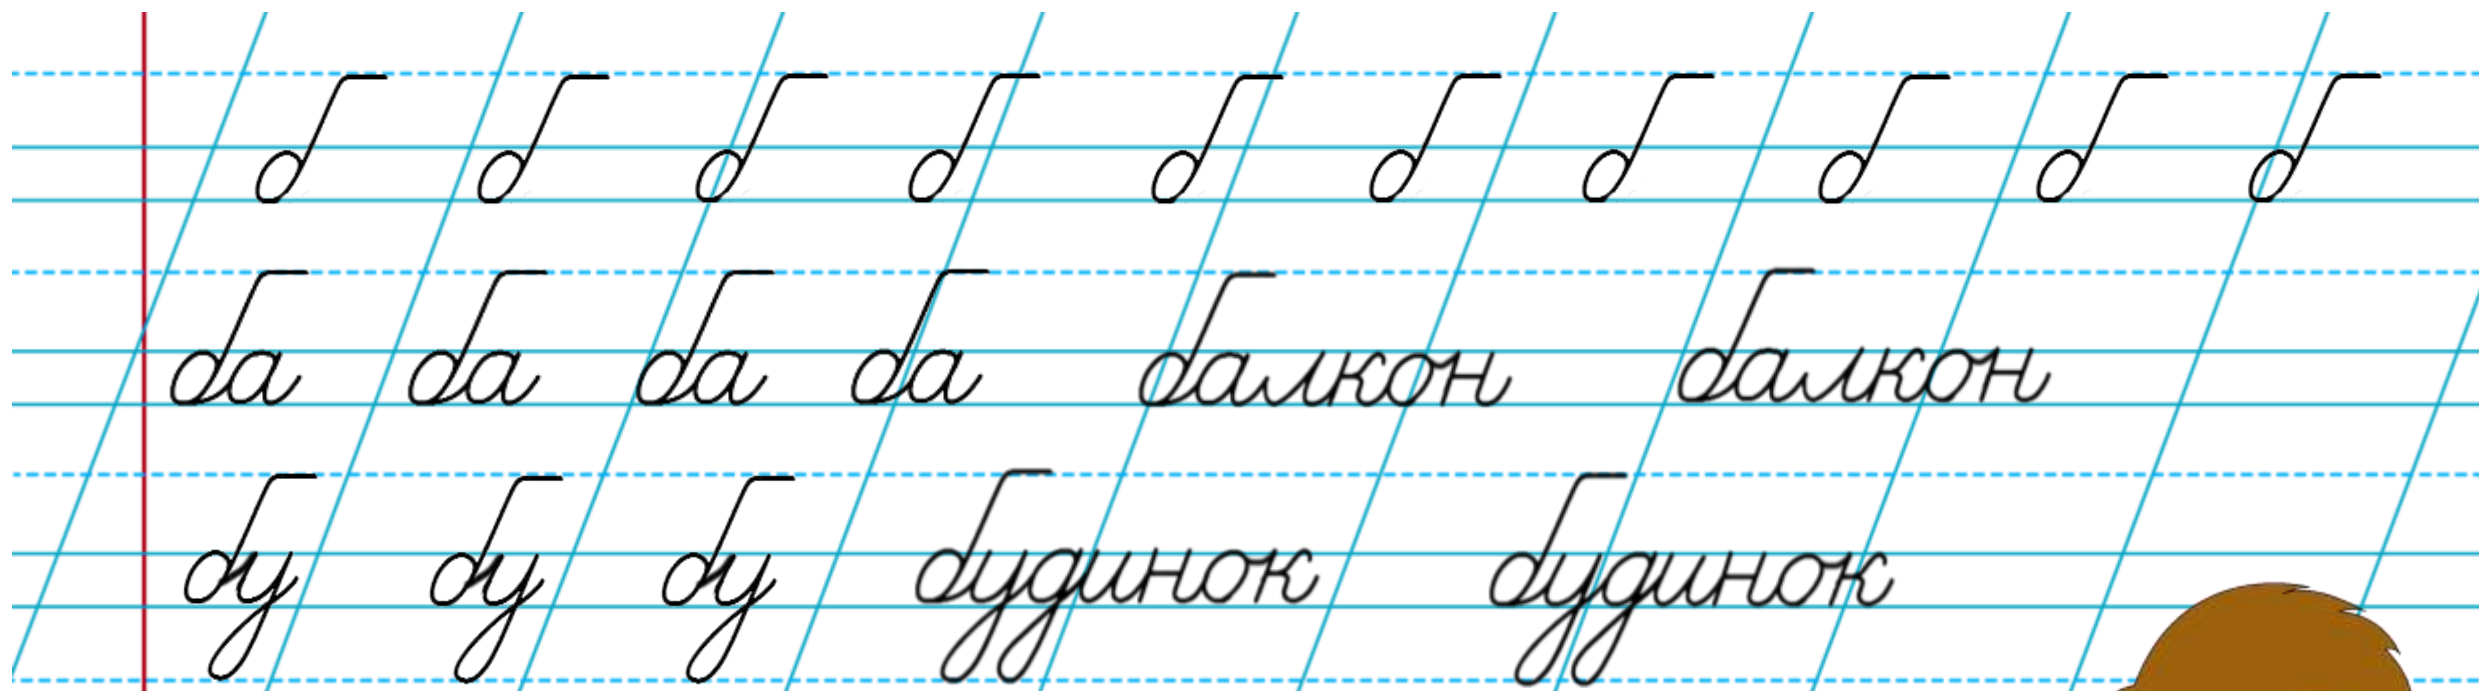 б б б б б б б б б б
ба ба ба ба балкон балкон
бу бу бу будинок будинок